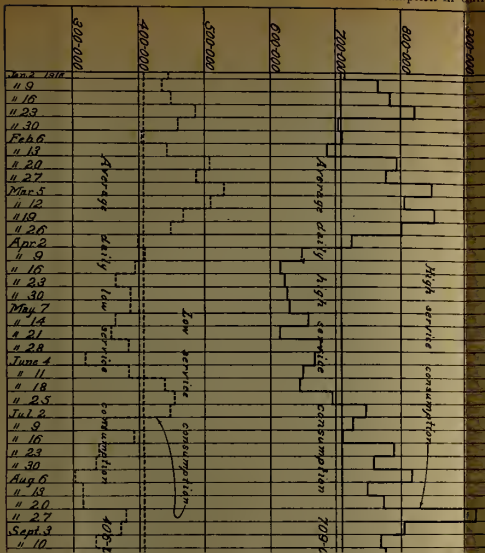 300·000
400·000
500·000
600·000
700·000
800·000
900·000
Jan. 2 1918
" 9
" 16
" 23
" 30
Feb 6
" 13
" 20
" 27
Mar 5
" 12
" 19
" 26
Apr 2
" 9
" 16
" 23
" 30
May 7
" 14
" 21
" 28
June 4
" 11
" 18
" 25
Jul 2
" 9
" 16
" 23
" 30
Aug 6
" 13
" 20
" 27
Sept. 3
" 10
Average daily low service consumption
Low service consumption
Average daily high service consumption 709
High service consumption